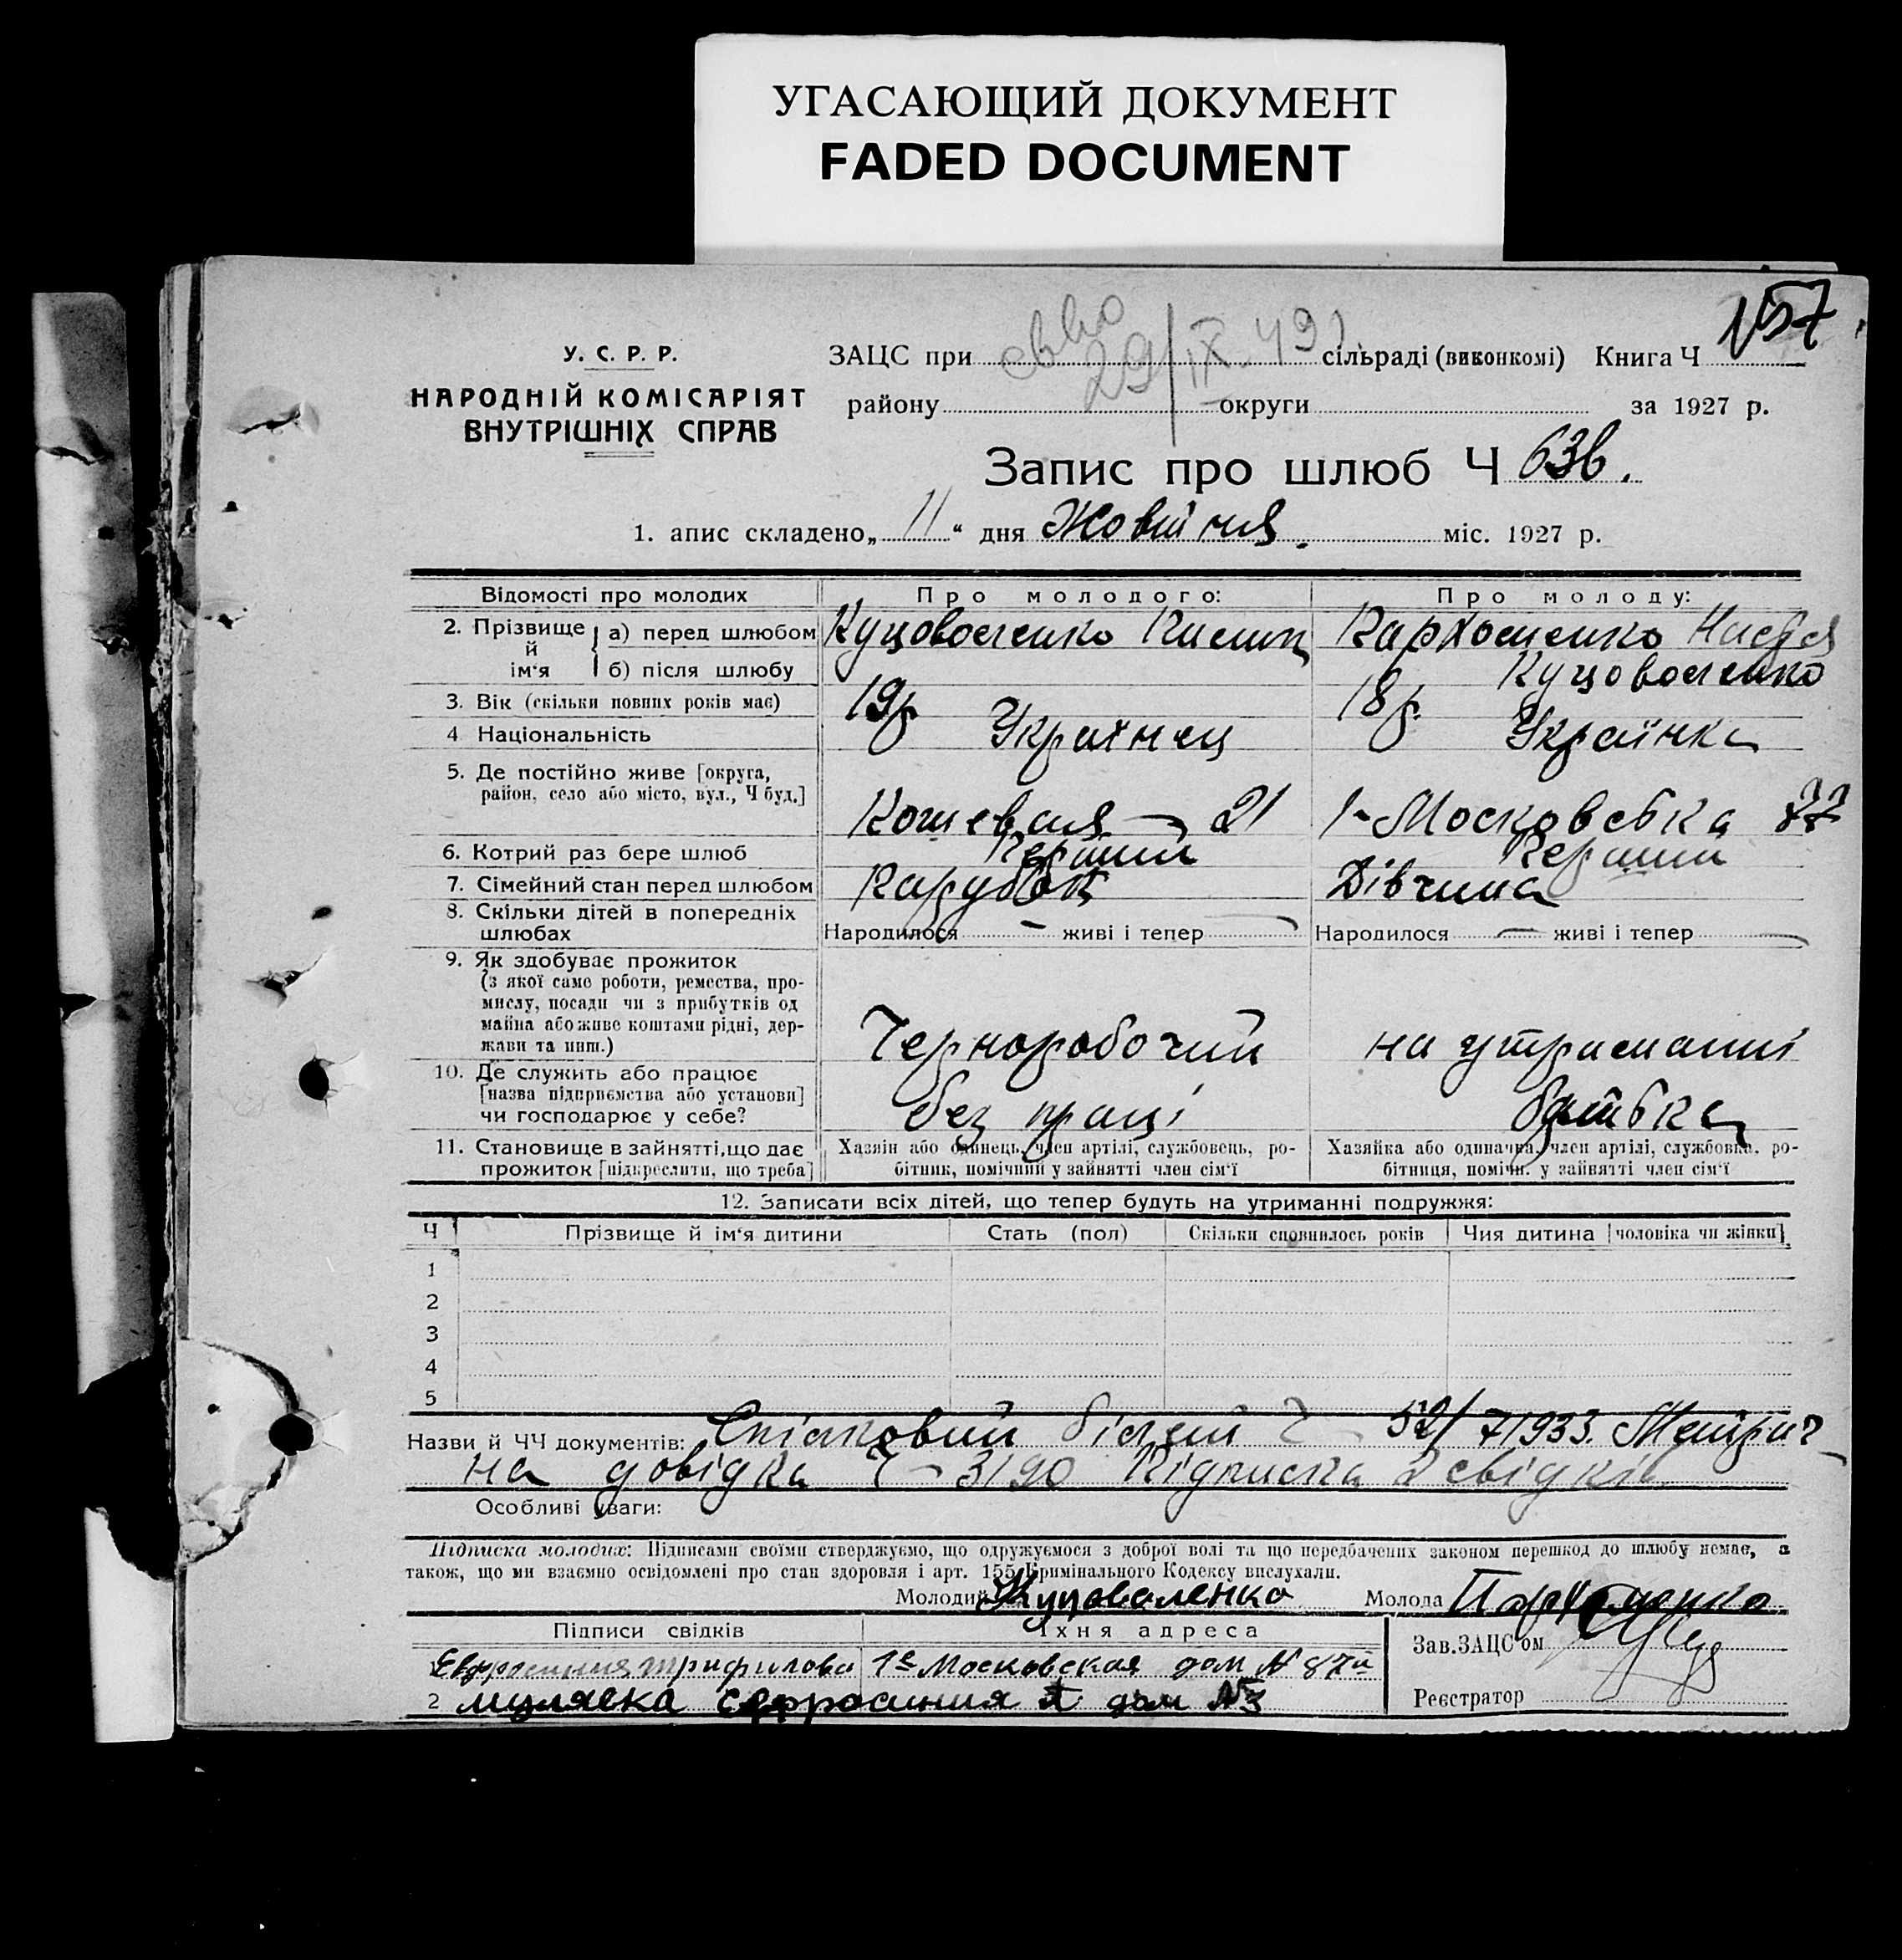 УГАСАЮЩИЙ ДОКУМЕНТ
FADED DOCUMENT
157
У. С. Р. Р.
НАРОДНІЙ КОМІСАРІЯТ
ВНУТРІШНІХ СПРАВ
ЗАЦС при сільраді (виконкомі) Книга Ч
29/IX.49
району округи за 1927 р.
Запис про шлюб Ч 636.
1. апис складено „11“ дня Жовтня. міс. 1927 р.
Відомості про молодих Про молодого: Про молоду:
2. Прізвище й ім'я а) перед шлюбом Куцоволенко Пархоменко Настя
б) після шлюбу Куцоволенко
3. Вік (скільки повних років має) 19р 18р.
4 Національність Українец Українка
5. Де постійно живе [округа,
район, село або місто, вул., Ч буд.] Кошевая – 21 1-Московська
6. Котрий раз бере шлюб Перший Перший
7. Сімейний стан перед шлюбом Парубок Дівчина
8. Скільки дітей в попередніх
шлюбах Народилося – живі і тепер – Народилося – живі і тепер –
9. Як здобуває прожиток
(з якої саме роботи, ремества, про-
мислу, посади чи з прибутків од
майна або живе коштами рідні, дер-
жави та инш.) Чорноробочий на утриманні
10. Де служить або працює
[назва підприємства або установи]
чи господарює у себе? без праці батька
11. Становище в зайнятті, що дає
прожиток [підкреслити, що треба]
Хазяін або одинець, член артілі, службовець, ро-
бітник, помічний у зайнятті член сім'ї
Хазяйка або одиначка, член артілі, службовка, ро-
бітниця, помічн. у зайнятті член сім'ї
12. Записати всіх дітей, що тепер будуть на утриманні подружжя:
Ч Прізвище й ім'я дитини Стать (пол) Скільки сповнилось років Чия дитина [чоловіка чи жінки]
1
2
3
4
5
Назви й ЧЧ документів: Спілковий білет Ч – 52/71933. Метрич-
на довідка Ч – 3190 Підписка 2 свідків
Особливі уваги:
Підписка молодих: Підписами своїми стверджуємо, що одружуємося з доброї волі та що передбачених законом перешкод до шлюбу немає, а
також, що ми взаємно освідомлені про стан здоровля і арт. 155 Кримінального Кодексу вислухали.
Молодий Куцоваленко Молода Пархоменко
Підписи свідків Їхня адреса Зав. ЗАЦС'ом
Трифилова 1я Московская дом № 87й
2 Ефросиния дом №3 Реєстратор